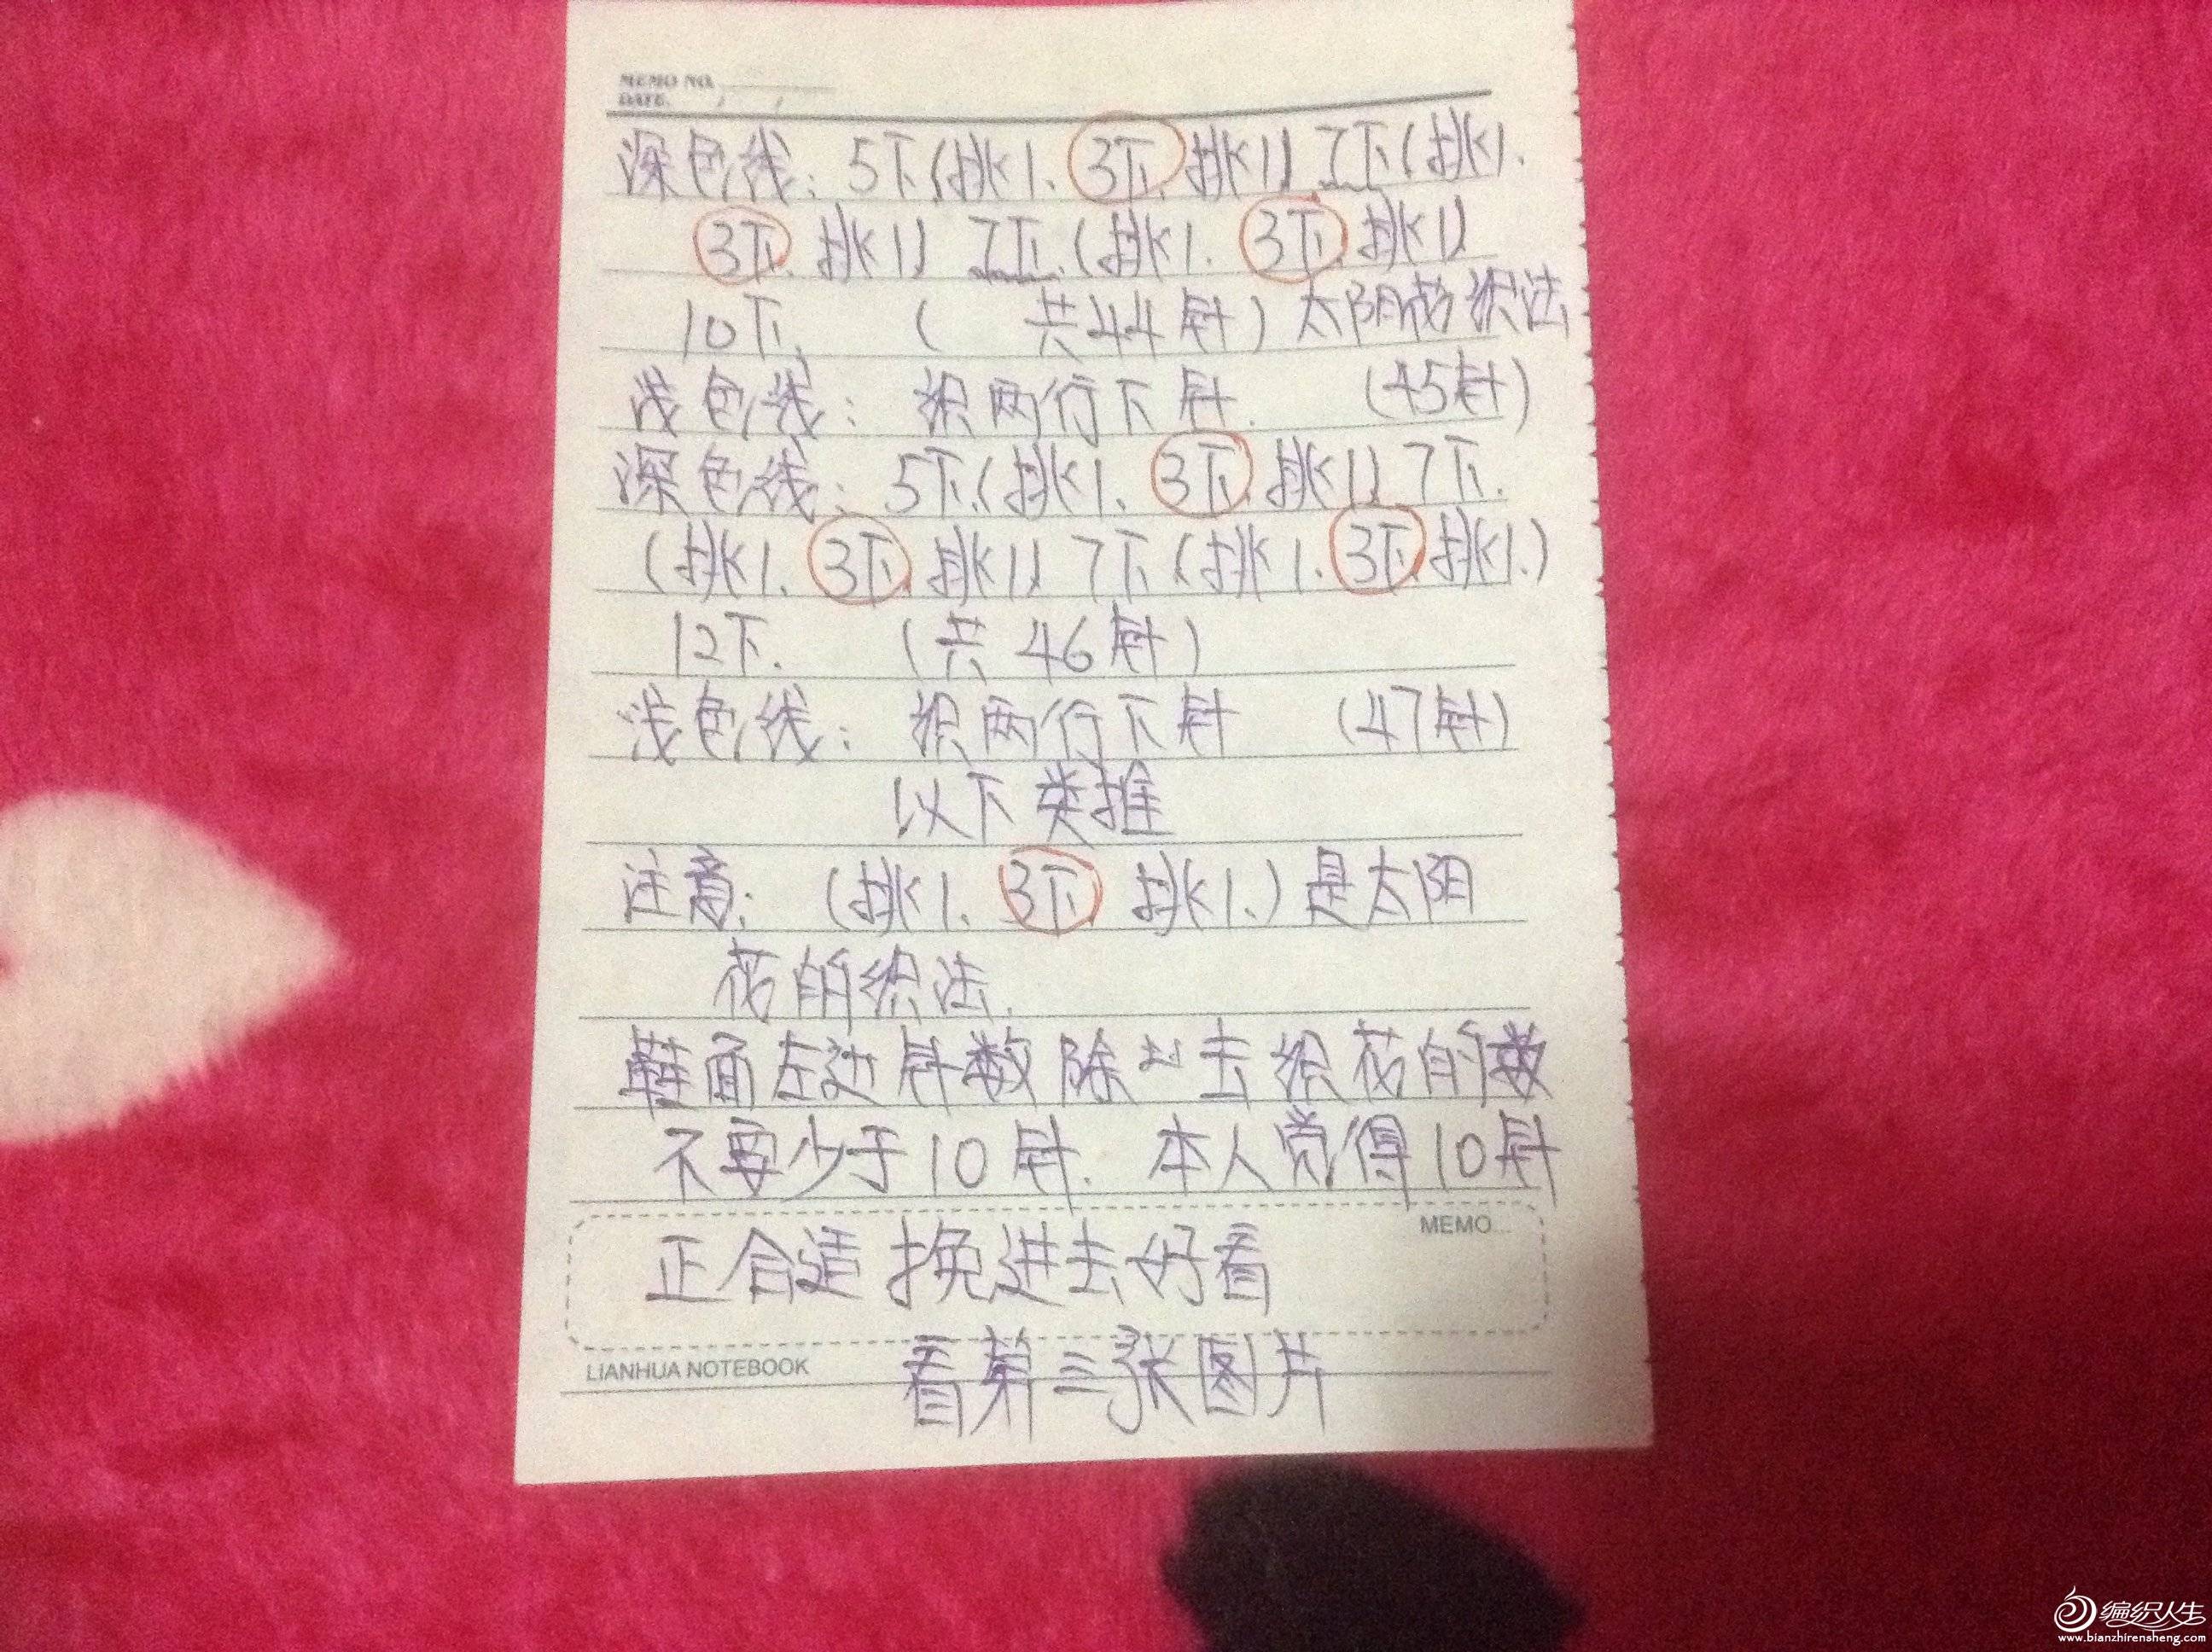 MEMO NO.
DATE. / /
深色线: 5下(挑1、3下、挑1) 7下(挑1、
3下、挑1) 7下(挑1、3下、挑1)
10下. ( 共44针) 太阳花织法
浅色线: 织两行下针. (45针)
深色线: 5下(挑1、3下、挑1) 7下.
(挑1、3下、挑1) 7下(挑1、3下、挑1、)
12下. (共46针)
浅色线: 织两行下针 (47针)
以下类推
注意: (挑1、3下、挑1、) 是太阳
花的织法.
鞋面左边针数除去织花的数
不要少于10针. 本人觉得10针
MEMO...
正合适 挽进去好看
LIANHUA NOTEBOOK
看第三张图片
编织人生
www.bianzhirensheng.com